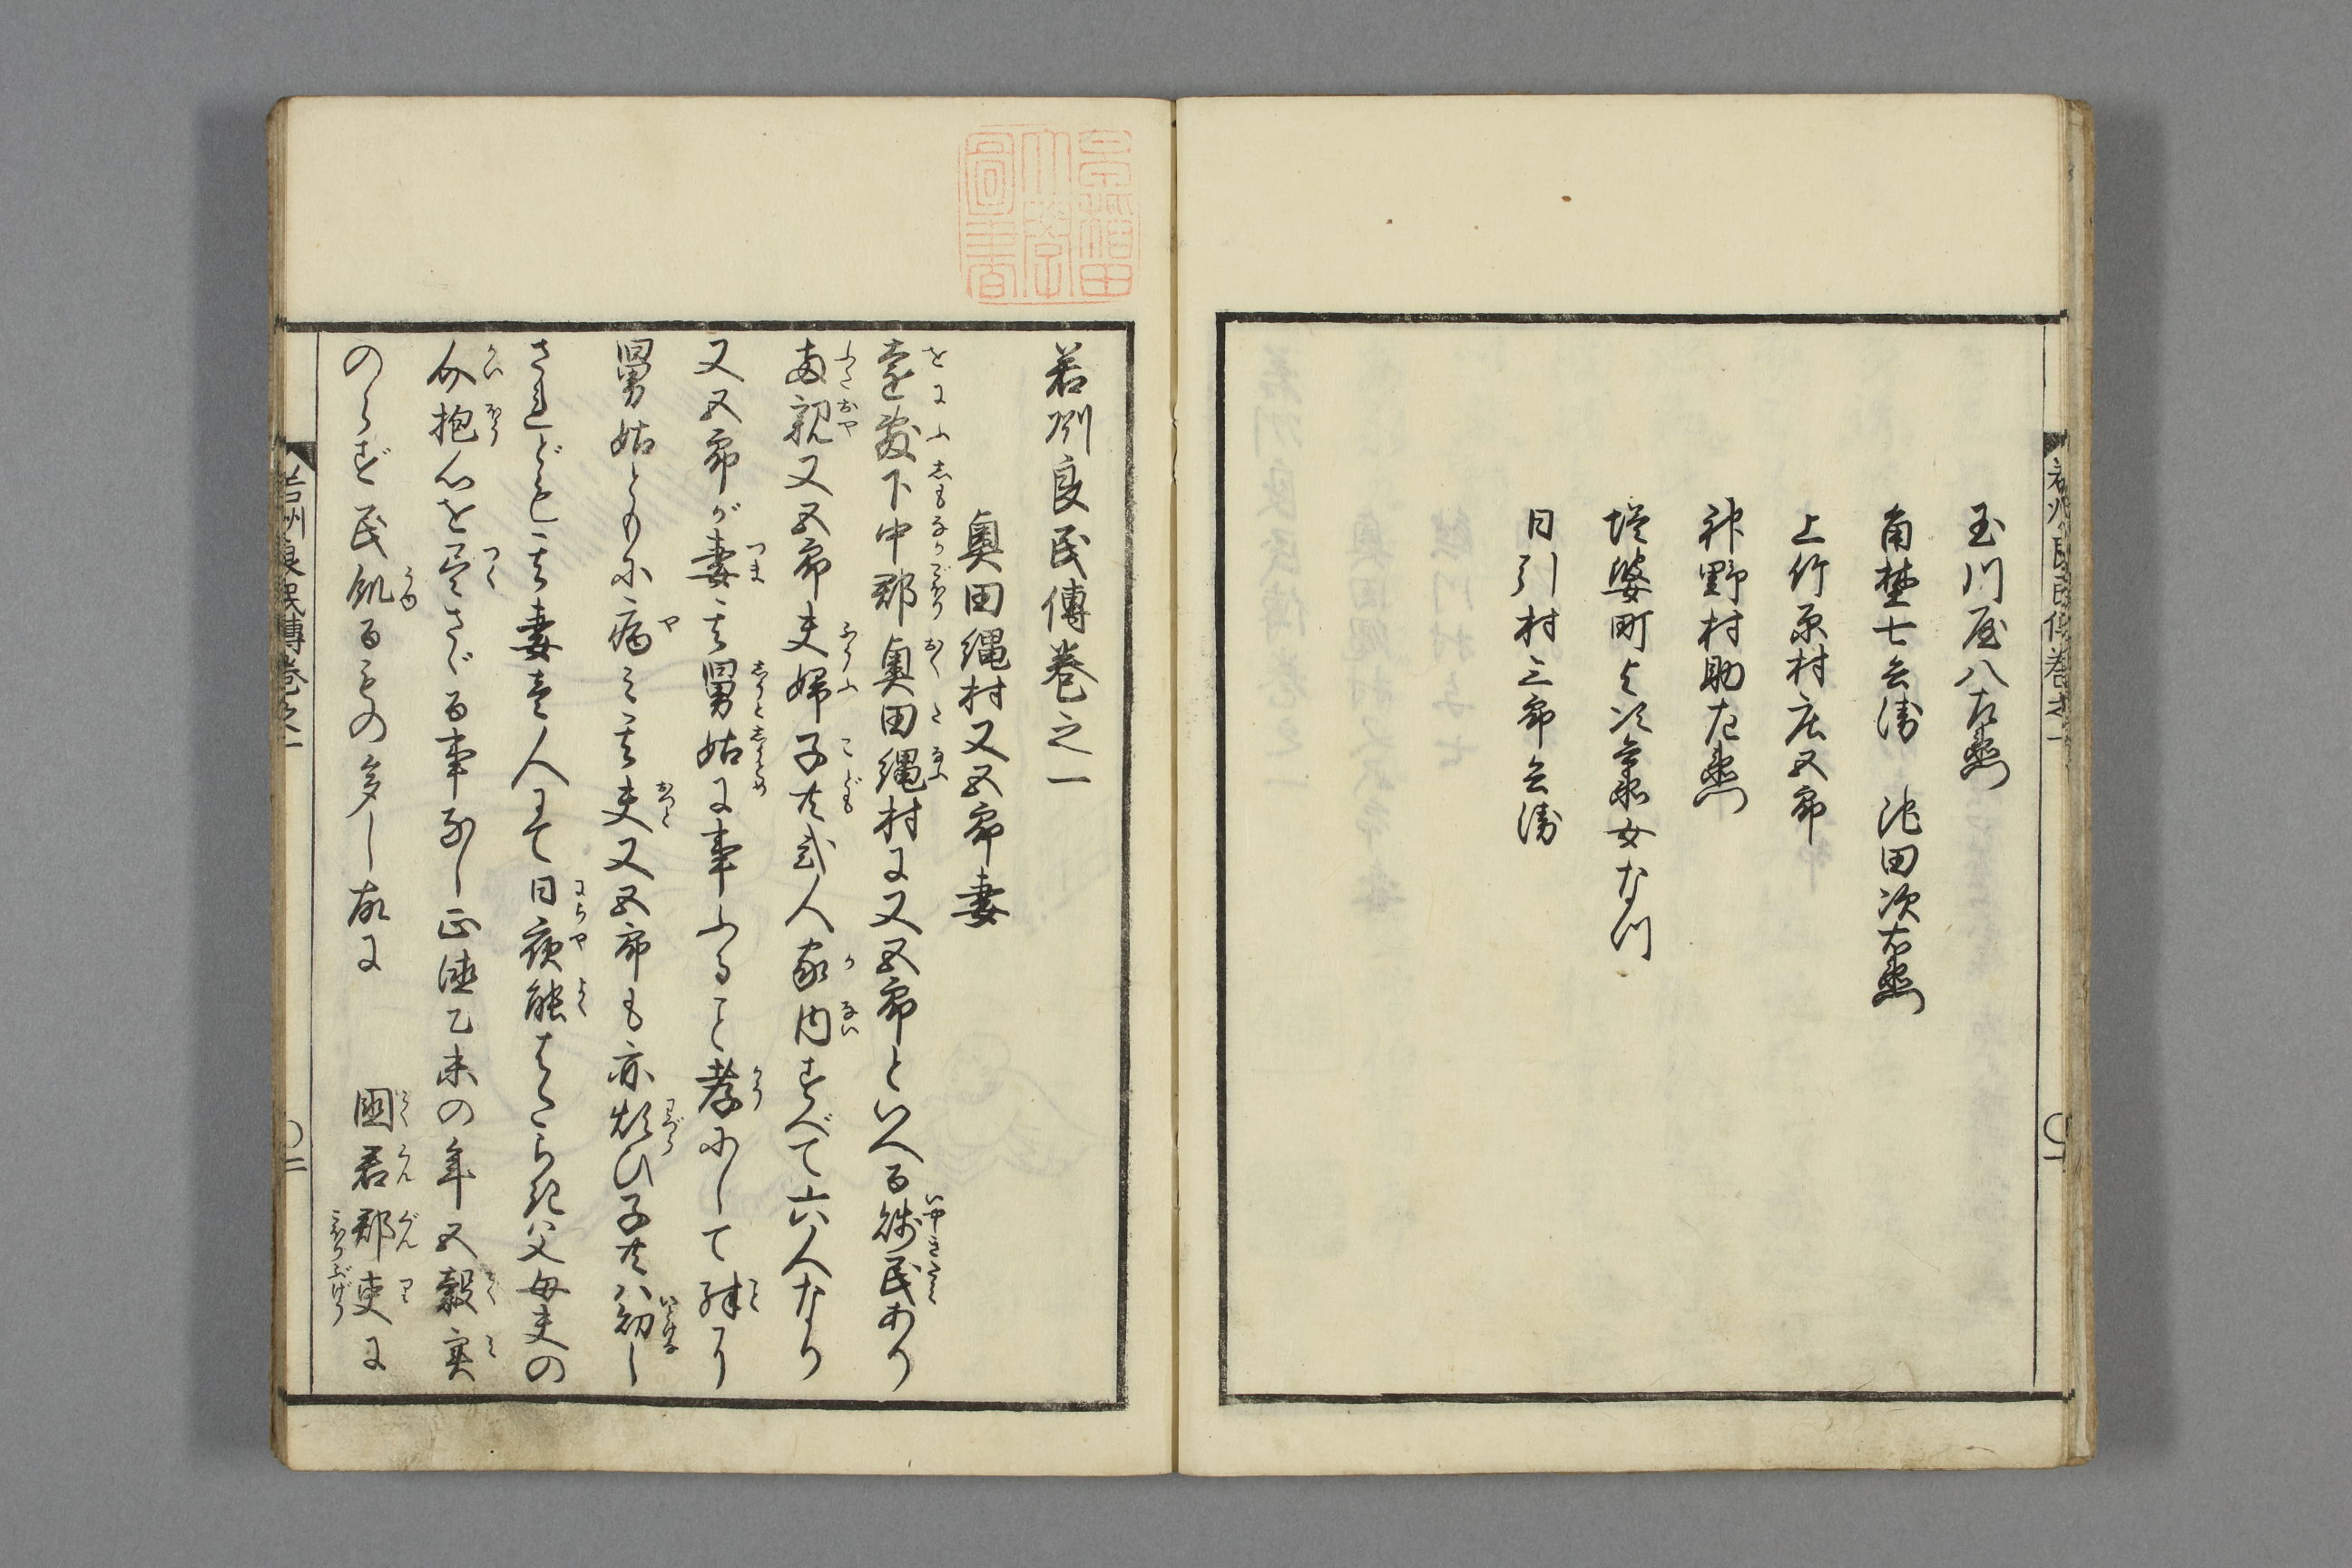 若州良民傳巻之一
玉川屋八右衛門
角埜七兵衛　池田次右衛門
上竹原村庄五郎
神野村助左衛門
塔婆町与次兵衛女なつ
日引村三郎兵衛
早稲田大學圖書
若州良民傳巻之一
奥田縄村又五郎妻
遠敷下中郡奥田縄村に又五郎といへる賤民あり
両親又五郎夫婦子共弐人家内すべて六人なり
又五郎が妻其舅姑に事ふること孝にして殊に
舅姑ともに病て其夫又五郎も亦煩ひ子共ハ幼し
されども其妻壱人にて日夜能はたらき父母夫の
介抱心を尽さゞる事なし正徳乙未の年五穀実
のらず民飢るもの多し故に　國君郡吏に
若州良民傳巻之一　〇二